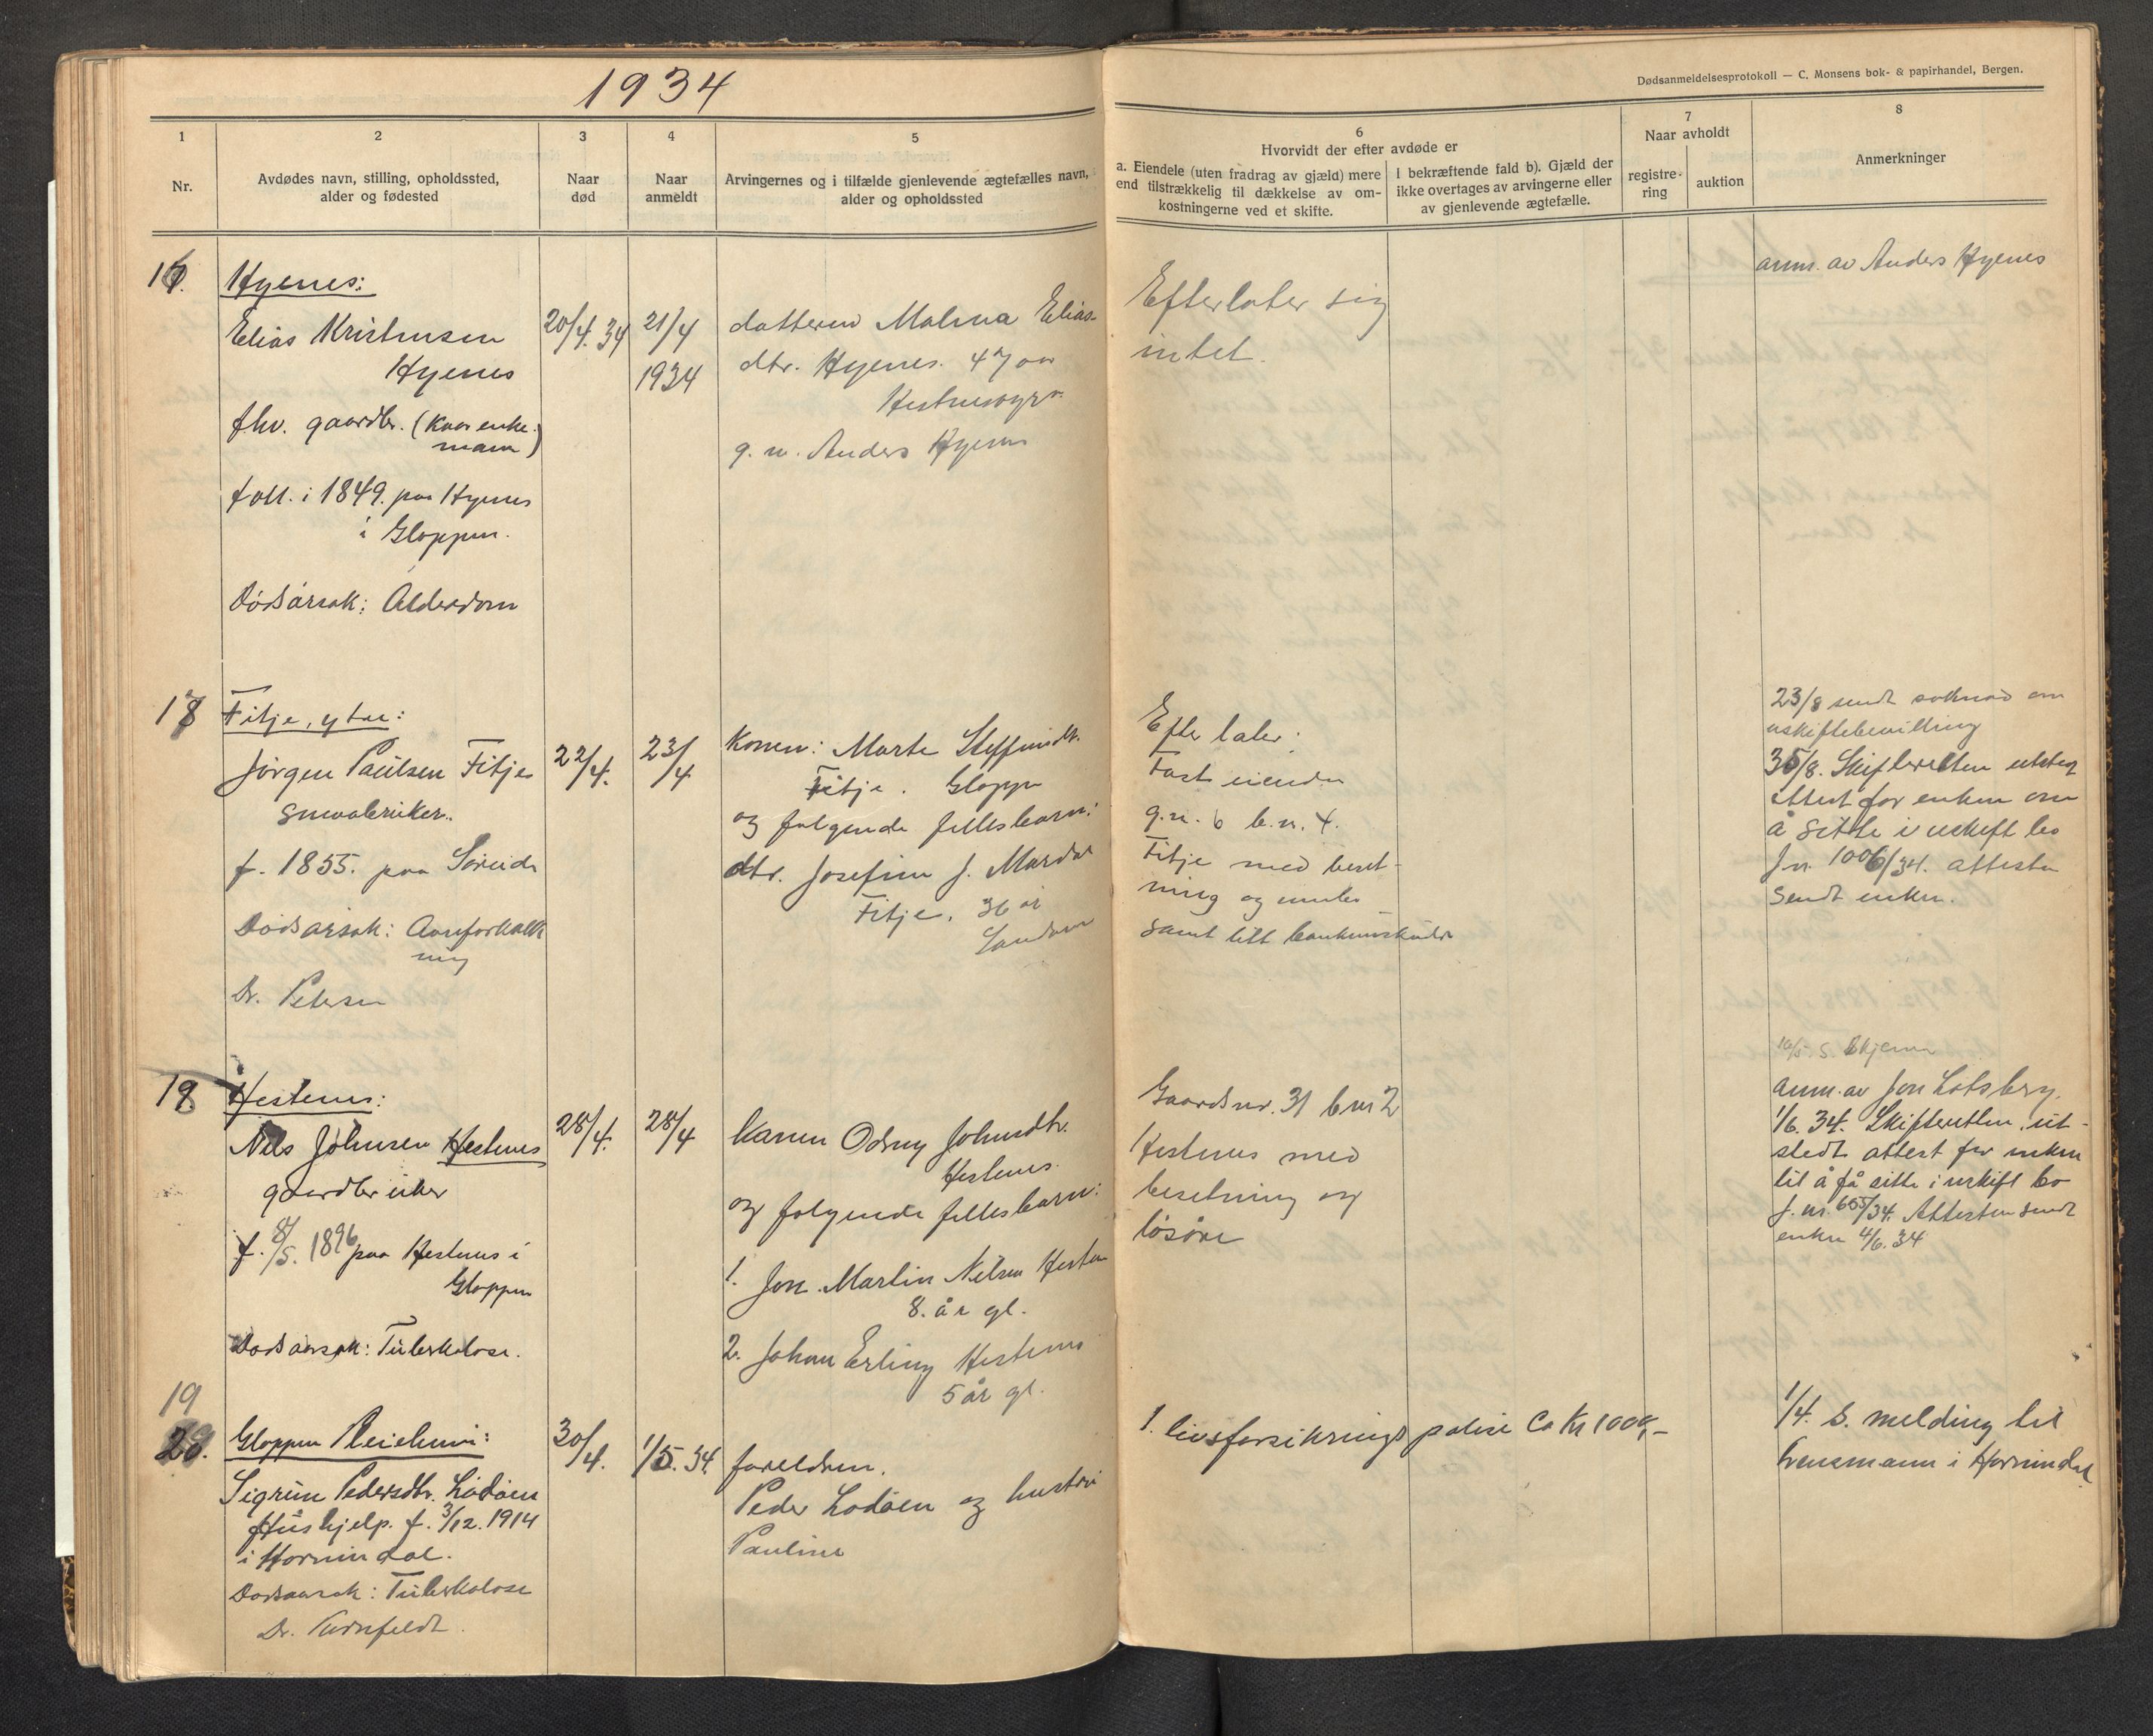 1934
Dødsanmeldelsesprotokoll — C. Monsens bok- & papirhandel, Bergen.
1
2
3
4
5
6
7
8
Nr.
Avdødes navn, stilling, opholdssted,
alder og fødested
Naar
død
Naar
anmeldt
Arvingernes og i tilfælde gjenlevende ægtefælles navn,
alder og opholdssted
Hvorvidt der efter avdøde er
a. Eiendele (uten fradrag av gjæld) mere
end tilstrækkelig til dækkelse av om-
kostningerne ved et skifte.
I bekræftende fald b). Gjæld der
ikke overtages av arvingerne eller
av gjenlevende ægtefælle.
Naar avholdt
registre-
ring
auktion
Anmerkninger
16.
Hyenes:
Elias Kristensen
Hyenes
fhv. gaardbr. (Kaar enke-
mann)
født i 1849. paa Hyenes
i Gloppen.
Dødsårsak: Alderdom
20/4. 34
21/4
1934
datteren Malena Elias-
dtr. Hyenes. 47 aar
g. m. Anders Hyenes
Efterlater sig
intet.
anm. av Anders Hyenes
17
Fitje, ytre:
Jørgen Paulsen Fitje
Smaabruker.
f. 1855. paa Søreide
Dødsårsak: Aareforkalk
ning
Dr. Petersen
22/4.
23/4
Konen: Marte Steffensdtr.
Fitje. Gloppen
og følgende fellesbarn:
dtr. Josefine J. Mardal
Fitje. 36 år
Sandane
Efterlater:
Fast eiendom
g.nr. 6 b.nr. 4.
Fitje med beset-
ning og innbo
samt litt bankinnskudd
23/8 sendt søknad om
uskiftebevilling
30/8. Skifteretten utsted
attest for enken om
å sitte i uskift bo
J.nr. 1006/34. attesten
sendt enken.
18
Hestenes:
Nils Johnsen Hestenes
gaardbruker
f. 8/5. 1896 paa Hestenes i
Gloppen
Dødsaarsak: Tuberkulose.
28/4.
28/4
Konen Odny Johnsdtr.
Hestenes.
og følgende fellesbarn:
1. Jon Martin Nilsen Hestenes
8. år gl.
2. Johan Erling Hestenes
5 år gl.
Gaardsnr. 31 bnr 2
Hestenes med
besetning og
løsøre
16/5. S. Skjema
anm. av Jon Lotsberg.
1/6. 34. Skifteretten ut-
stedt attest for enken
til å få sitte i uskift bo
J. nr. 655/34. Attesten sendt
enken 4/6. 34
19
20.
Gloppen Pleieheim:
Sigrun Pedersdtr. Lødøen
Hushjelp. f. 3/12. 1914
i Hornindal.
Dødsaarsak: Tuberkulose
30/4.
1/5. 34.
foreldrene.
Peder Lødøen og hustru
Pauline
1. livsforsikrings polise Ca Kr 100,-
1/4. S. melding til
Lensmann i Hornindal